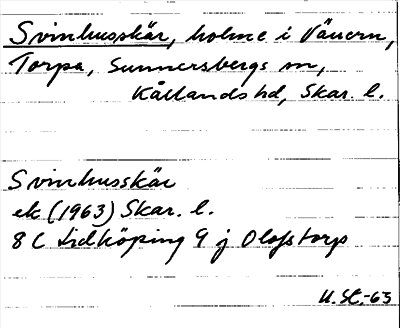 Svinhusskär, holme i Vänern,
Torpa, Sunnersbergs sn,
Kållands hd, Skar. l.
Svinhusskär
ek (1963) Skar. l.
8 C Lidköping 9 j Olofstorp
U.St.-63